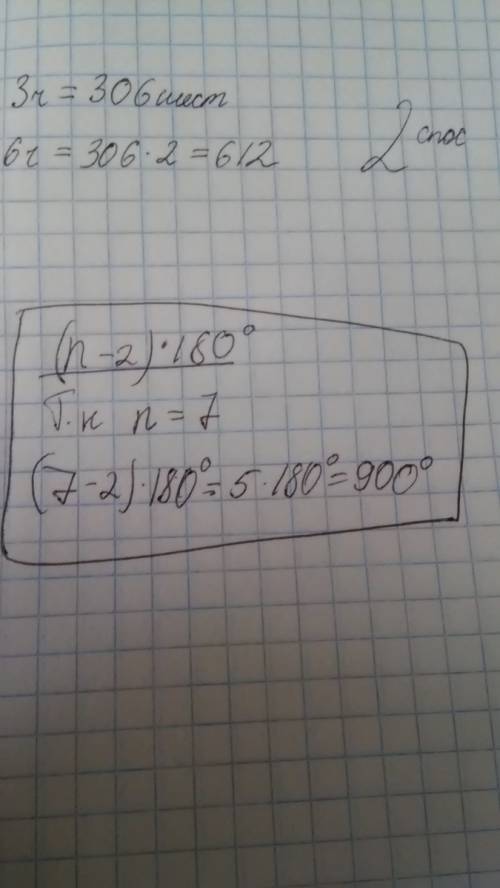 3ч = 306 шест
6ч = 306·2 = 612
2 спос
(n-2)·180°
Т.к n = 7
(7-2)·180° = 5·180° = 900°